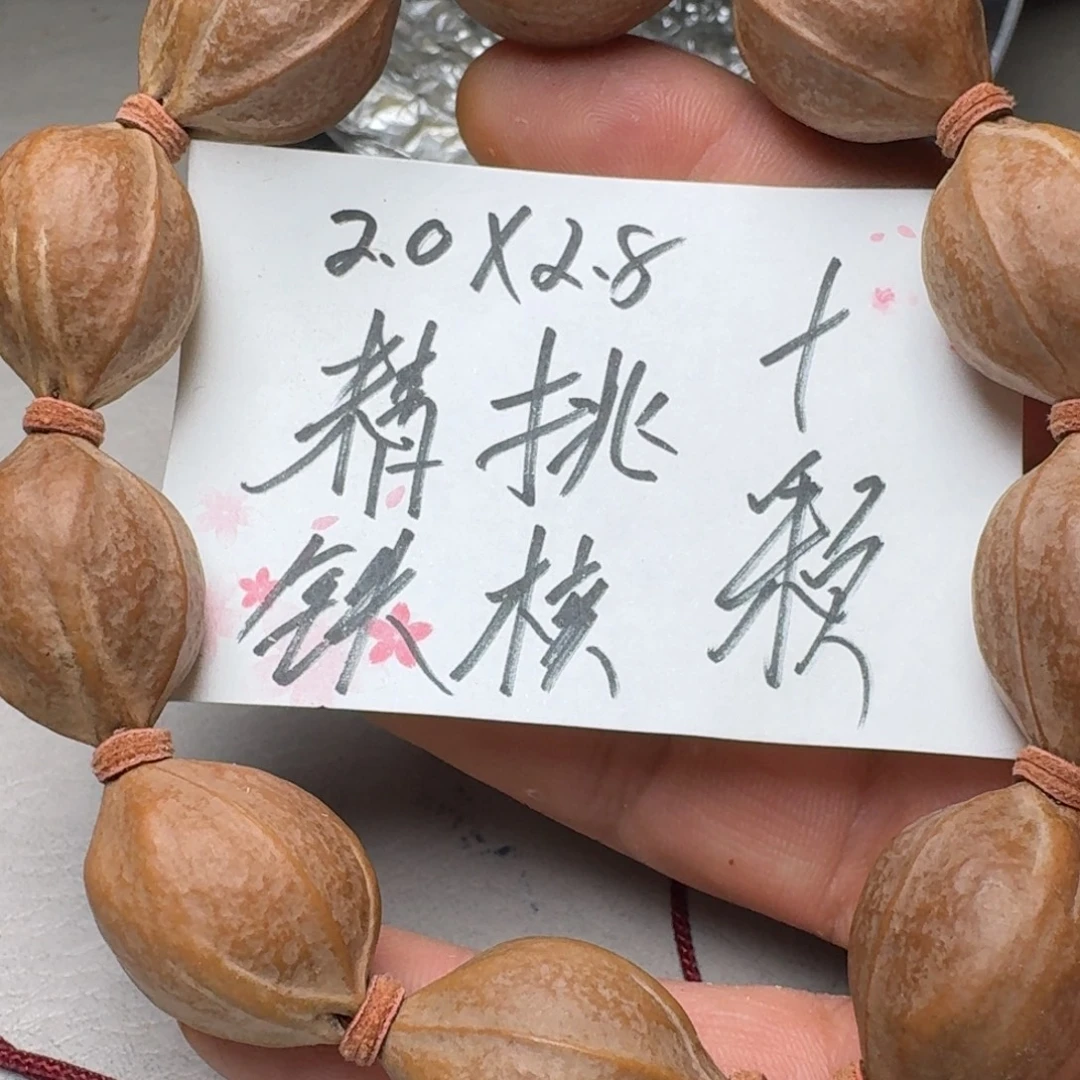 2.0X2.8
精挑
铁核
十颗